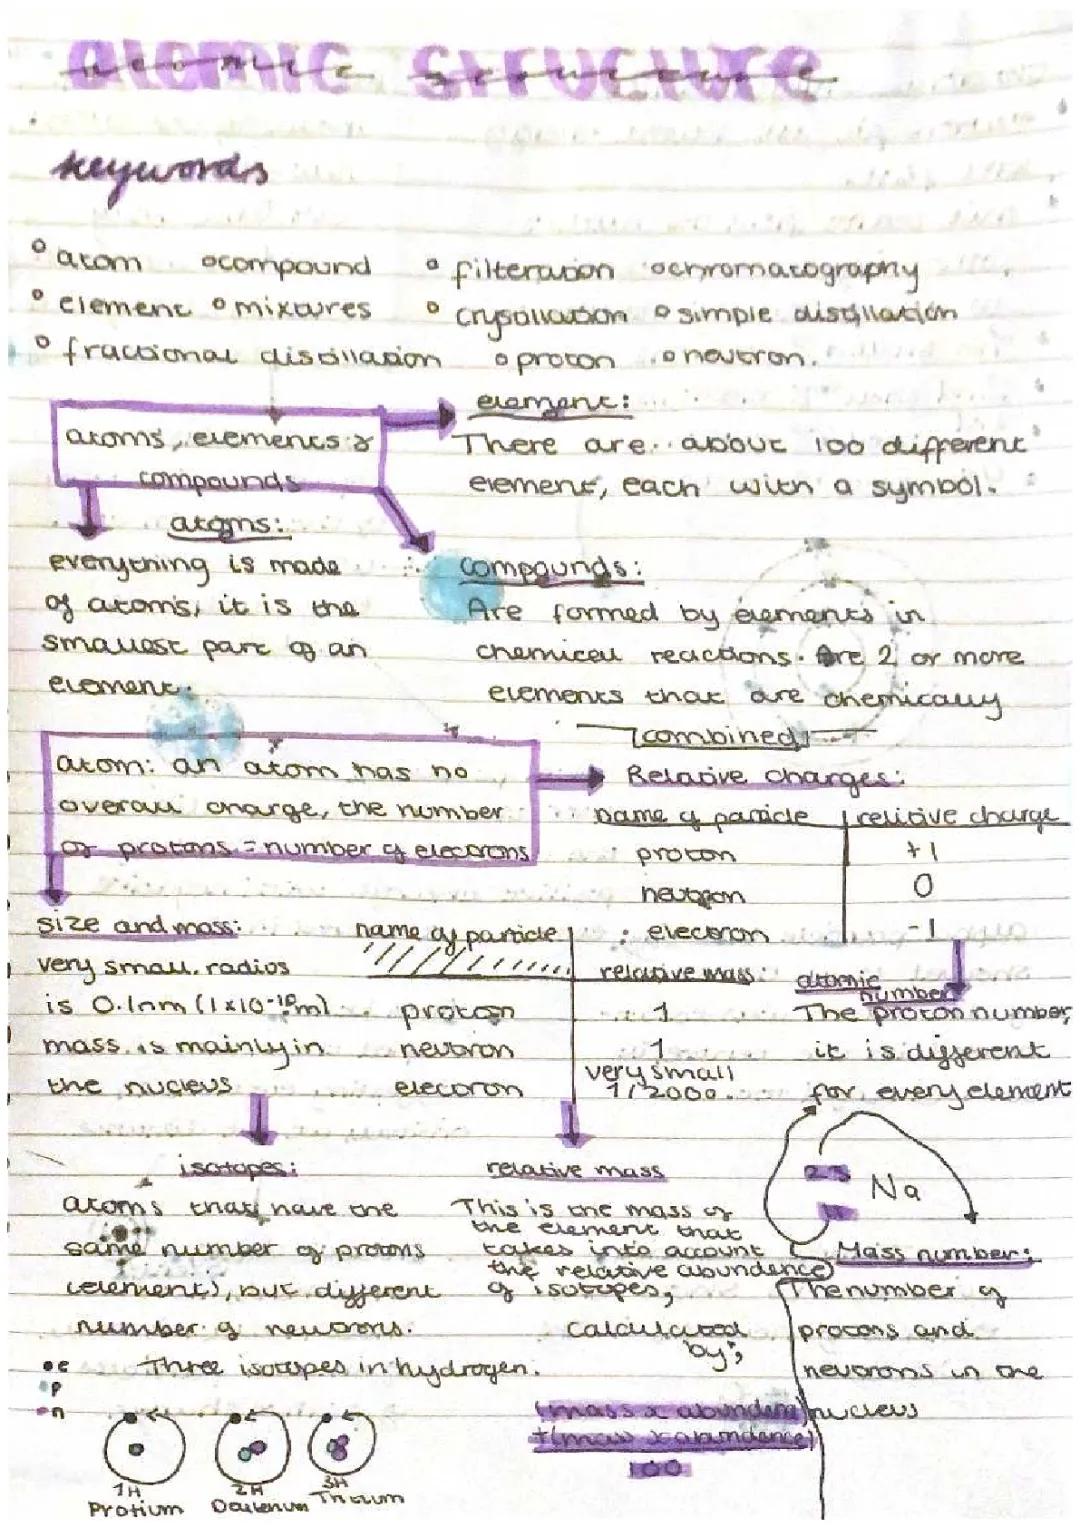 atomic structure
keywords
° atom ° compound ° filteration ° chromatography
° element ° mixtures ° crysallation ° simple distillation
° fractional distillation ° proton ° neutron.
atoms, elements &
compounds
element:
There are about 100 different
element, each with a symbol.
atoms:
everything is made
of atoms, it is the
smallest part of an
element.
compounds:
Are formed by elements in
chemical reactions. Are 2 or more
elements that are chemically
combined
atom: an atom has no
overall charge, the number
of protons = number of electrons
Relative charges:
name of particle relitive charge
proton +1
neutron 0
electron -1
size and mass:
very small. radios
is 0.1nm (1x10-10m)
mass is mainly in
the nucleus
name of particle relative mass:
proton 1
neutron 1
electron very small 1/2000.
atomic number
The proton number,
it is different
for every element
isotopes:
atoms that have the
same number of protons
(element), but different
number of neutrons.
Three isotopes in hydrogen.
relative mass
This is the mass of
the element that
takes into account
the relative abundence
of isotopes,
calculated
by;
(mass x abundan)
+(mass x abundance)
100
23
Na
11
Mass number:
The number of
protons and
neutrons in the
nucleus
e
p
n
1H
Protium
2H
Deuterium
3H
Tritium